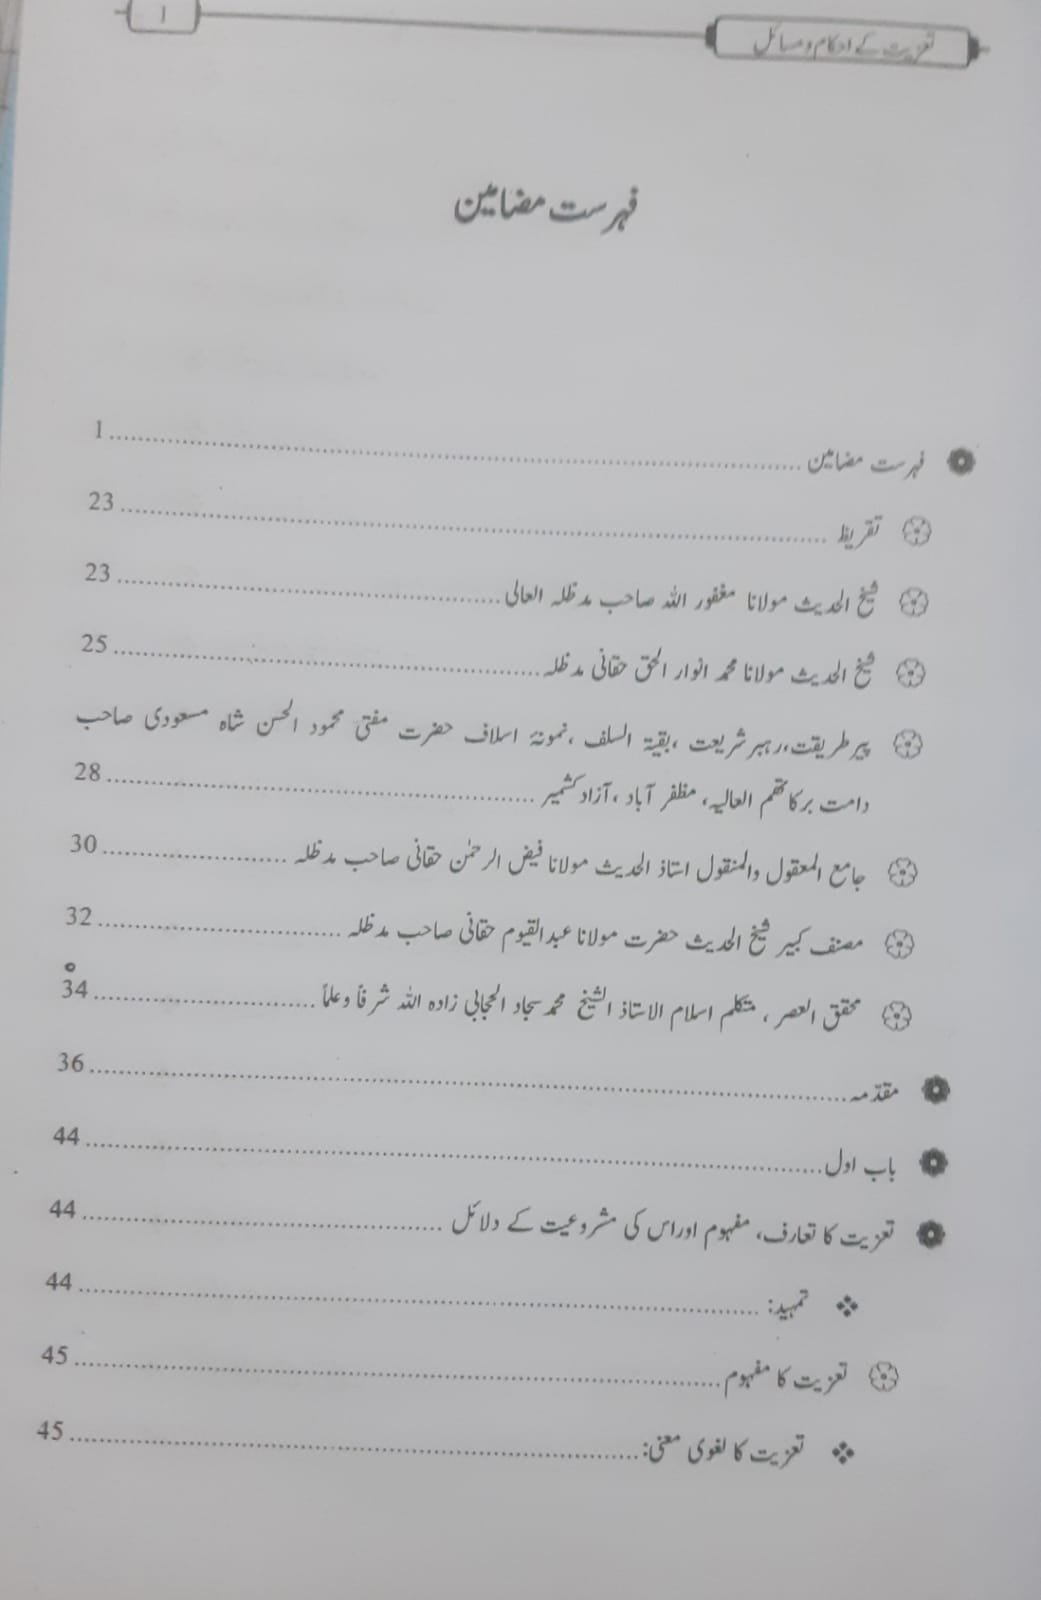 تعزیت کے احکام و مسائل
1
فہرست مضامین
فہرست مضامین ........ 1
تقریظ ........ 23
شیخ الحدیث مولانا مغفور اللہ صاحب مدظلہ العالی ........ 23
شیخ الحدیث مولانا محمد انوار الحق حقانی مدظلہ ........ 25
پیر طریقت، رہبر شریعت ،بقیۃ السلف ،نمونۂ اسلاف حضرت مفتی محمود الحسن شاہ مسعودی صاحب
دامت برکاتھم العالیہ، مظفر آباد ،آزاد کشمیر ........ 28
جامع المعقول والمنقول استاذ الحدیث مولانا فیض الرحمٰن حقانی صاحب مدظلہ ........ 30
مصنف کبیر شیخ الحدیث حضرت مولانا عبدالقیوم حقانی صاحب مدظلہ ........ 32
محقق العصر ، متکلم اسلام الاستاذ الشیخ محمد سجاد الحجابی زادہ اللہ شرفاً وعلماً ........ 34
مقدّمہ ........ 36
باب اول ........ 44
تعزیت کا تعارف، مفہوم اور اس کی مشروعیت کے دلائل ........ 44
تمہید: ........ 44
تعزیت کا مفہوم ........ 45
تعزیت کا لغوی معنی: ........ 45